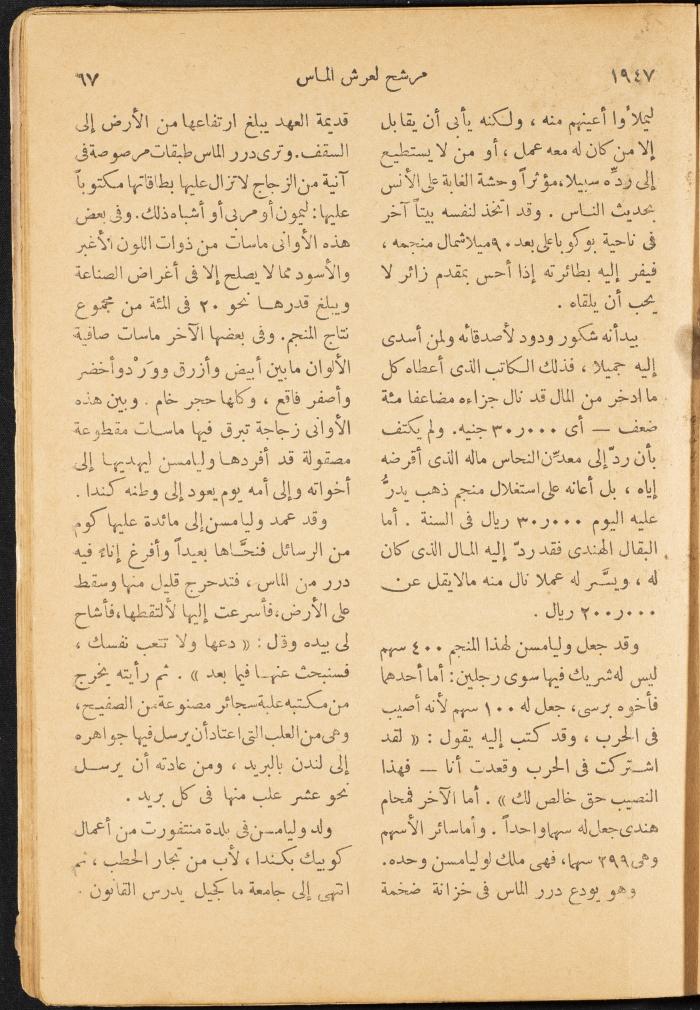 ١٩٤٧
مرشح لعرش الماس
٦٧
ليملأوا أعينهم منه ، ولكنه يأبى أن يقابل
إلا من كان له معه عمل ، أو من لا يستطيع
إلى ردِّه سبيلا، مؤثراً وحشة الغابة على الأنس
بحديث الناس . وقد اتخذ لنفسه بيتاً آخر
فى ناحية بوكوبا على بعد ٩٠ ميلا شمال منجمه ،
فيفر إليه بطائرته إذا أحس بمقدم زائر لا
يحب أن يلقاه .
بيد أنه شكور ودود لأصدقائه ولمن أسدى
إليه جميلا ، فذلك الكاتب الذى أعطاه كل
ما ادخر من المال قد نال جزاءه مضاعفا مئة
ضعف — أى ٣٠ر٠٠٠ جنيه. ولم يكتف
بأن ردّ إلى معدِّن النحاس ماله الذى أقرضه
إياه ، بل أعانه على استغلال منجم ذهب يدرُّ
عليه اليوم ٣٠ر٠٠٠ ريال فى السنة . أما
البقال الهندى فقد ردّ إليه المال الذى كان
له ، ويسَّر له عملا نال منه مالا يقل عن
٢٠٠ر٠٠٠ ريال .
وقد جعل وليامسن لهذا المنجم ٤٠٠ سهم
ليس له شريك فيها سوى رجلين: أما أحدها
فأخوه برسى، جعل له ١٠٠ سهم لأنه أصيب
فى الحرب ، وقد كتب إليه يقول : « لقد
اشتركت فى الحرب وقعدت أنا — فهذا
النصيب حق خالص لك » . أما الآخر فمحام
هندى جعل له سهما واحداً . وأما سائر الأسهم
وهى ٢٩٩ سهما، فهى ملك لوليامسن وحده.
وهو يودع درر الماس فى خزانة ضخمة
قديمة العهد يبلغ ارتفاعها من الأرض إلى
السقف. وترى درر الماس طبقات مرصوصة فى
آنية من الزجاج لا تزال عليها بطاقاتها مكتوباً
عليها: ليمون أو مربى أو أشباه ذلك. وفى بعض
هذه الأوانى ماسات من ذوات اللون الأغبر
والأسود مما لا يصلح إلا فى أغراض الصناعة
ويبلغ قدرها نحو ٢٠ فى المئة من مجموع
نتاج المنجم. وفى بعضها الآخر ماسات صافية
الألوان ما بين أبيض وأزرق ووَرْدو أخضر
وأصفر فاقع ، وكلها حجر خام . وبين هذه
الأوانى زجاجة تبرق فيها ماسات مقطوعة
مصقولة قد أفردها وليامسن ليهديها إلى
أخواته وإلى أمه يوم يعود إلى وطنه كندا .
وقد عمد وليامسن إلى مائدة عليها كوم
من الرسائل فنحَّاها بعيداً وأفرغ إناءً فيه
درر من الماس ، فتدحرج قليل منها وسقط
على الأرض، فأسرعت إليها لألتقطها، فأشاح
لى بيده وقال : « دعها ولا تتعب نفسك ،
فسنبحث عنها فيما بعد » . ثم رأيته يخرج
من مكتبه علبة سجائر مصنوعة من الصفيح،
وهى من العلب التى اعتاد أن يرسل فيها جواهره
إلى لندن بالبريد ، ومن عادته أن يرسل
نحو عشر علب منها فى كل بريد .
ولد وليامسن فى بلدة منتفورت من أعمال
كوبيك بكندا ، لأب من تجار الحطب ، ثم
انتهى إلى جامعة ما كجيل يدرس القانون .